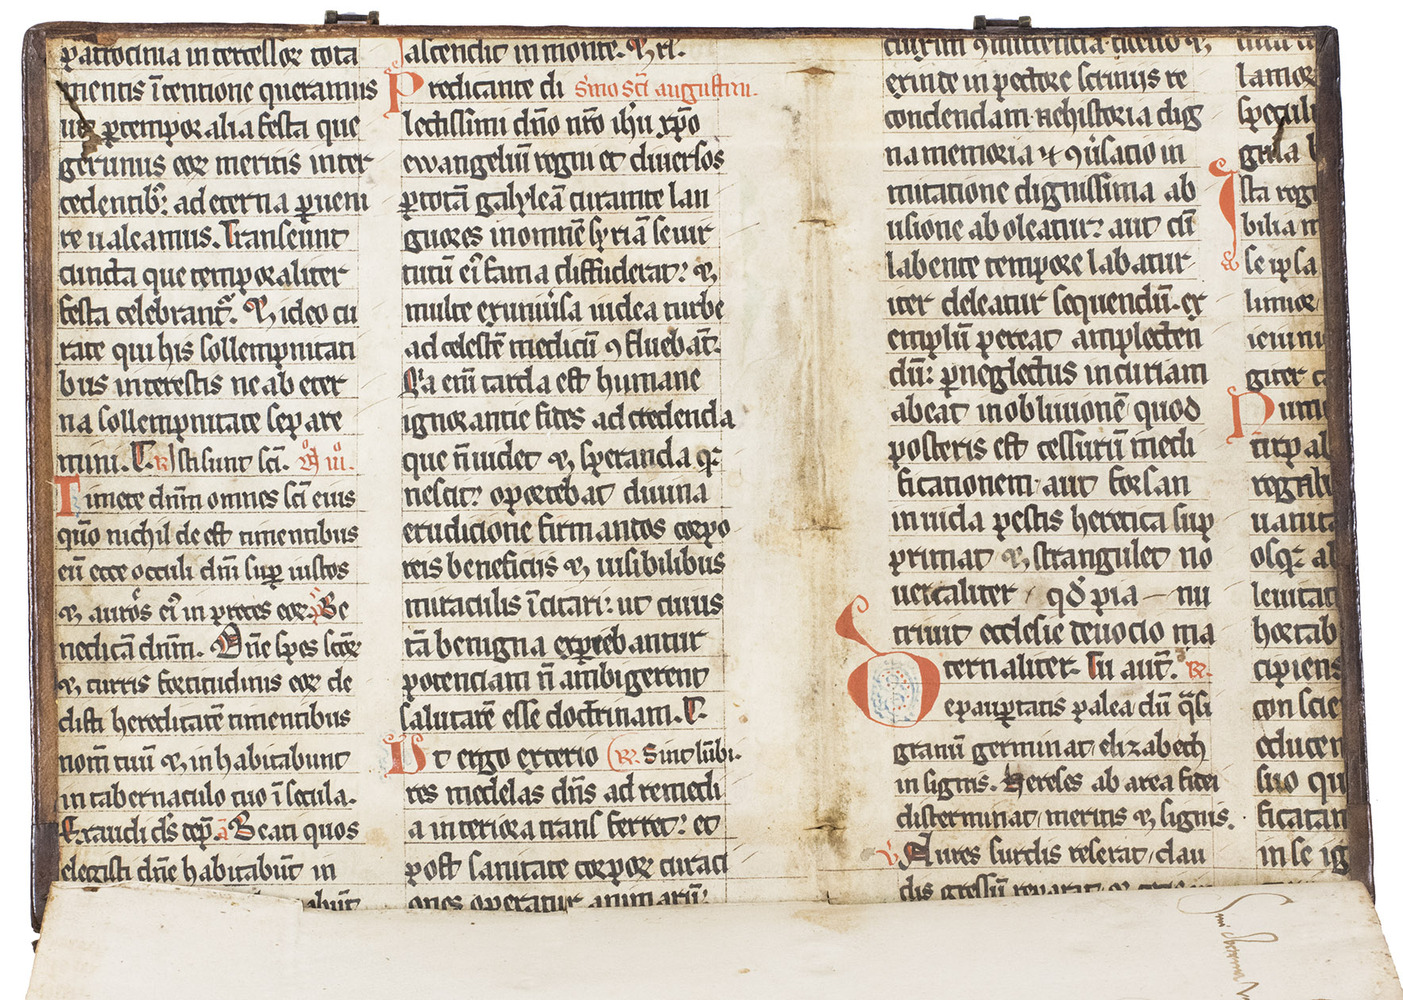 patrocinia intercessor tota
mentis ītentione queramus
ut p temporalia festa que
gerimus eor meritis inter
cedentib; ad eterna pueni
re ualeamus. Transeunt
cuncta que temporaliter
festa celebrant. Et ideo cu
rate qui his sollempnitati
bus interestis ne ab eter
na sollempnitate separe
mini. T. R Isti sunt sci. Vº iiiº.
Timete dnm omnes sci eius
qm nichil de est timentibus
eū ecce occuli dni sup iustos
et aures ei in preces eor. v Be
nedicā dnm. Dne spes scor
et turris fortitudinis eor de
disti hereditatē timentibus
nom tuū et inhabitabunt
in tabernaculo tuo ī secula.
Exaudi ds dep. a Beati quos
elegisti dne habitabūt in
abūt
ascendit in monte. Et rl.
Predicante di Smo Sci augustini.
lectissimi dno nro ihu xpo
ewangeliū regni et diuersos
p totā galyleā curante lan
guores in omnē syriā se uir
tutū ei fama diffuderat: et
multe ex uniuisa iudea turbe
ad celestē medicū 9fluebāt.
Qa eni tarda est humane
ignorantie fides ad credenda
que n uidet et speranda q
nescit: oportebat diuina
erudicione firmandos corpo
reis beneficiis et uisibilibus
miraculis īcitari: ut cuius
tā benigna expiebantur
potenciam n ambigerent
salutarē esse doctrinam. T.
Ut ergo exterio R. Sint lūbi.
res medelas dns ad remedi
a interiora transferret: et
post sanitate corpor curaci
ones operatur animarū:
exinde in pectore scriniis re
condendam. ne historia dig
na memoria et 9uisatio in
mitatione dignissima ab
usione aboleatur: aut cū
labente tempore labatur
iter deleatur sequendū. ex
emplū pereat amplecten
dū: p neglectus incuriam
abeat in obliuionē quod
posteris est cessurū in edi
ficationem. aut forsan
inuida pestis heretica sup
primat et strangulet no
uercaliter qd pia nu
triuit ecclesie deuocio ma
ternaliter. Tu aut. R.
De paupertatis palea dū qsi
granū germinat elizabeth
in signis. Hereses ab area fidei
disterminat meritis et signis.
v Aures surdis reserat clau
dis gressū reparat et
lamor
specul
gula
Ista reg
bilia
se ipsa
limior
ieiuni
giter
turpal
regib
osq al
leuitat
hortab
cipiens
conscie
educen
suo qu
ficatan
in se ig